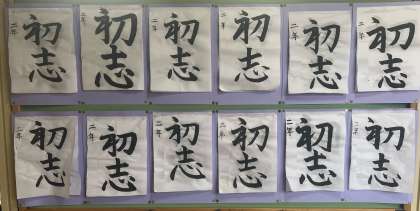 二年 初志
二年 初志
二年 初志
二年 初志
二年 初志
二年 初志
二年 初志
二年 初志
二年 初志
二年 初志
二年 初志
二年 初志